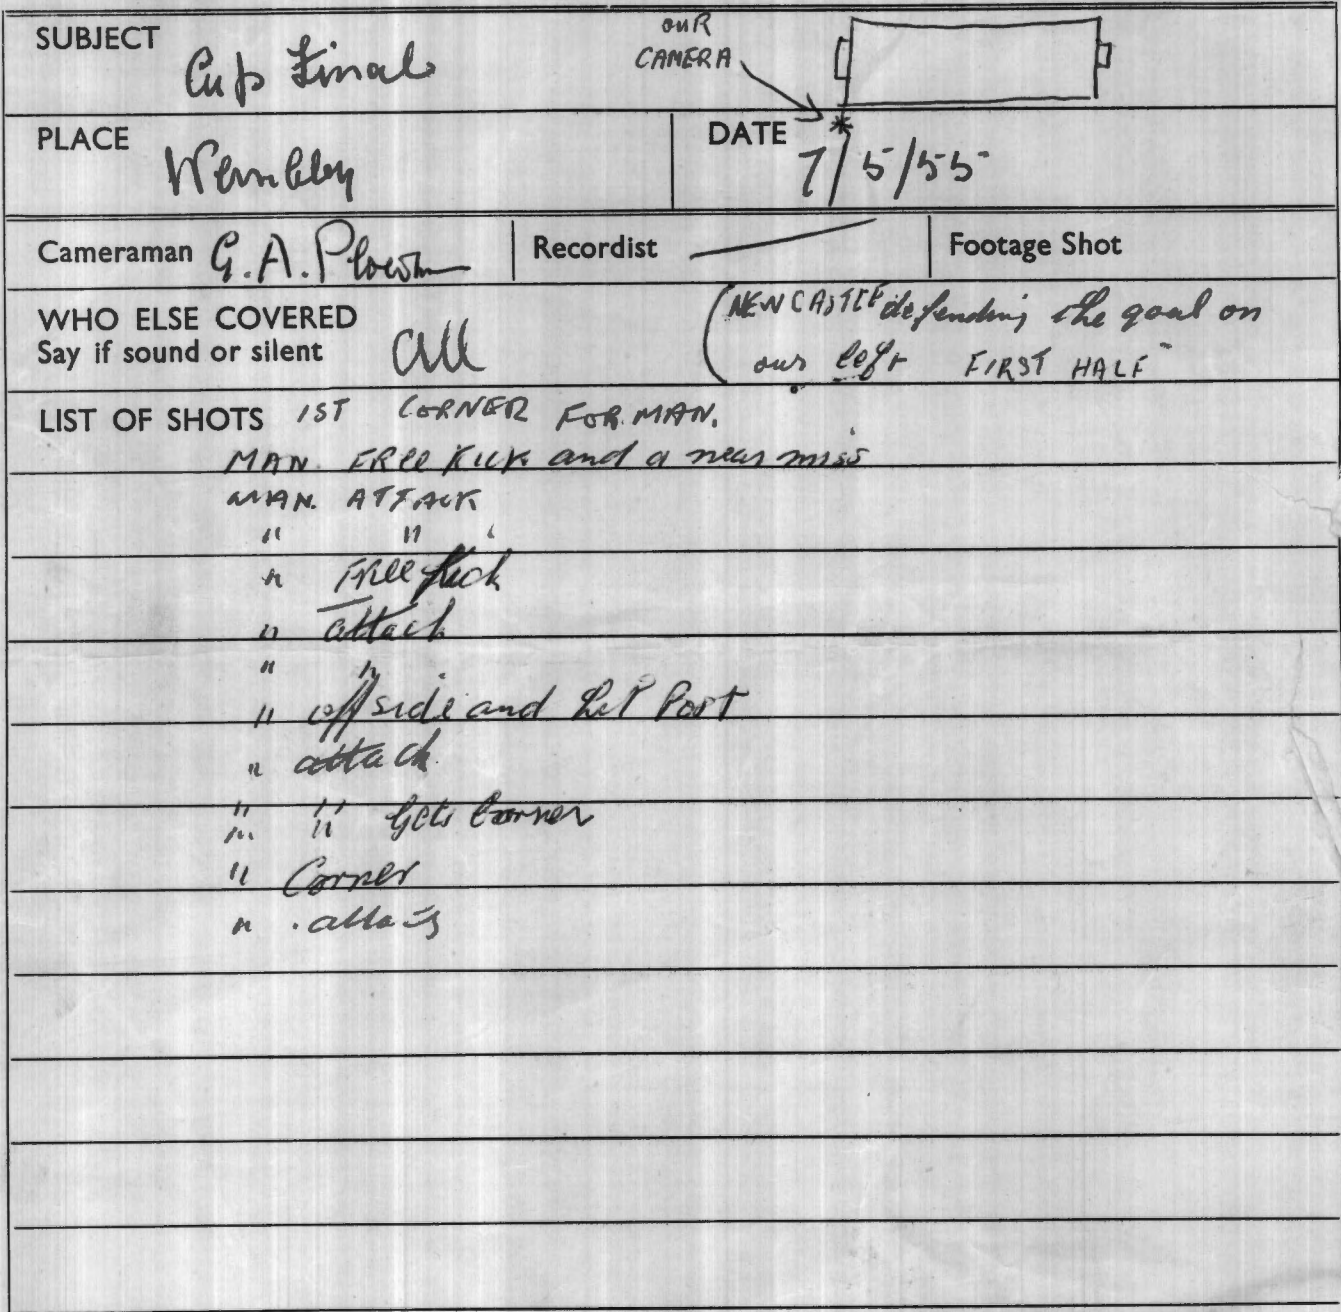 SUBJECT Cup Final
OUR
CAMERA
PLACE Wembley
DATE 7/5/55
Cameraman G.A. Plowman
Recordist
Footage Shot
WHO ELSE COVERED
Say if sound or silent All
(NEWCASTLE defending the goal on
our left FIRST HALF
LIST OF SHOTS 1ST CORNER FOR MAN.
MAN. FREE KICK and a near miss
MAN. ATTACK
" "
" FREE Kick
" attack
" "
" offside and hit Post
" attack
" "
" " Gets Corner
" Corner
" attack